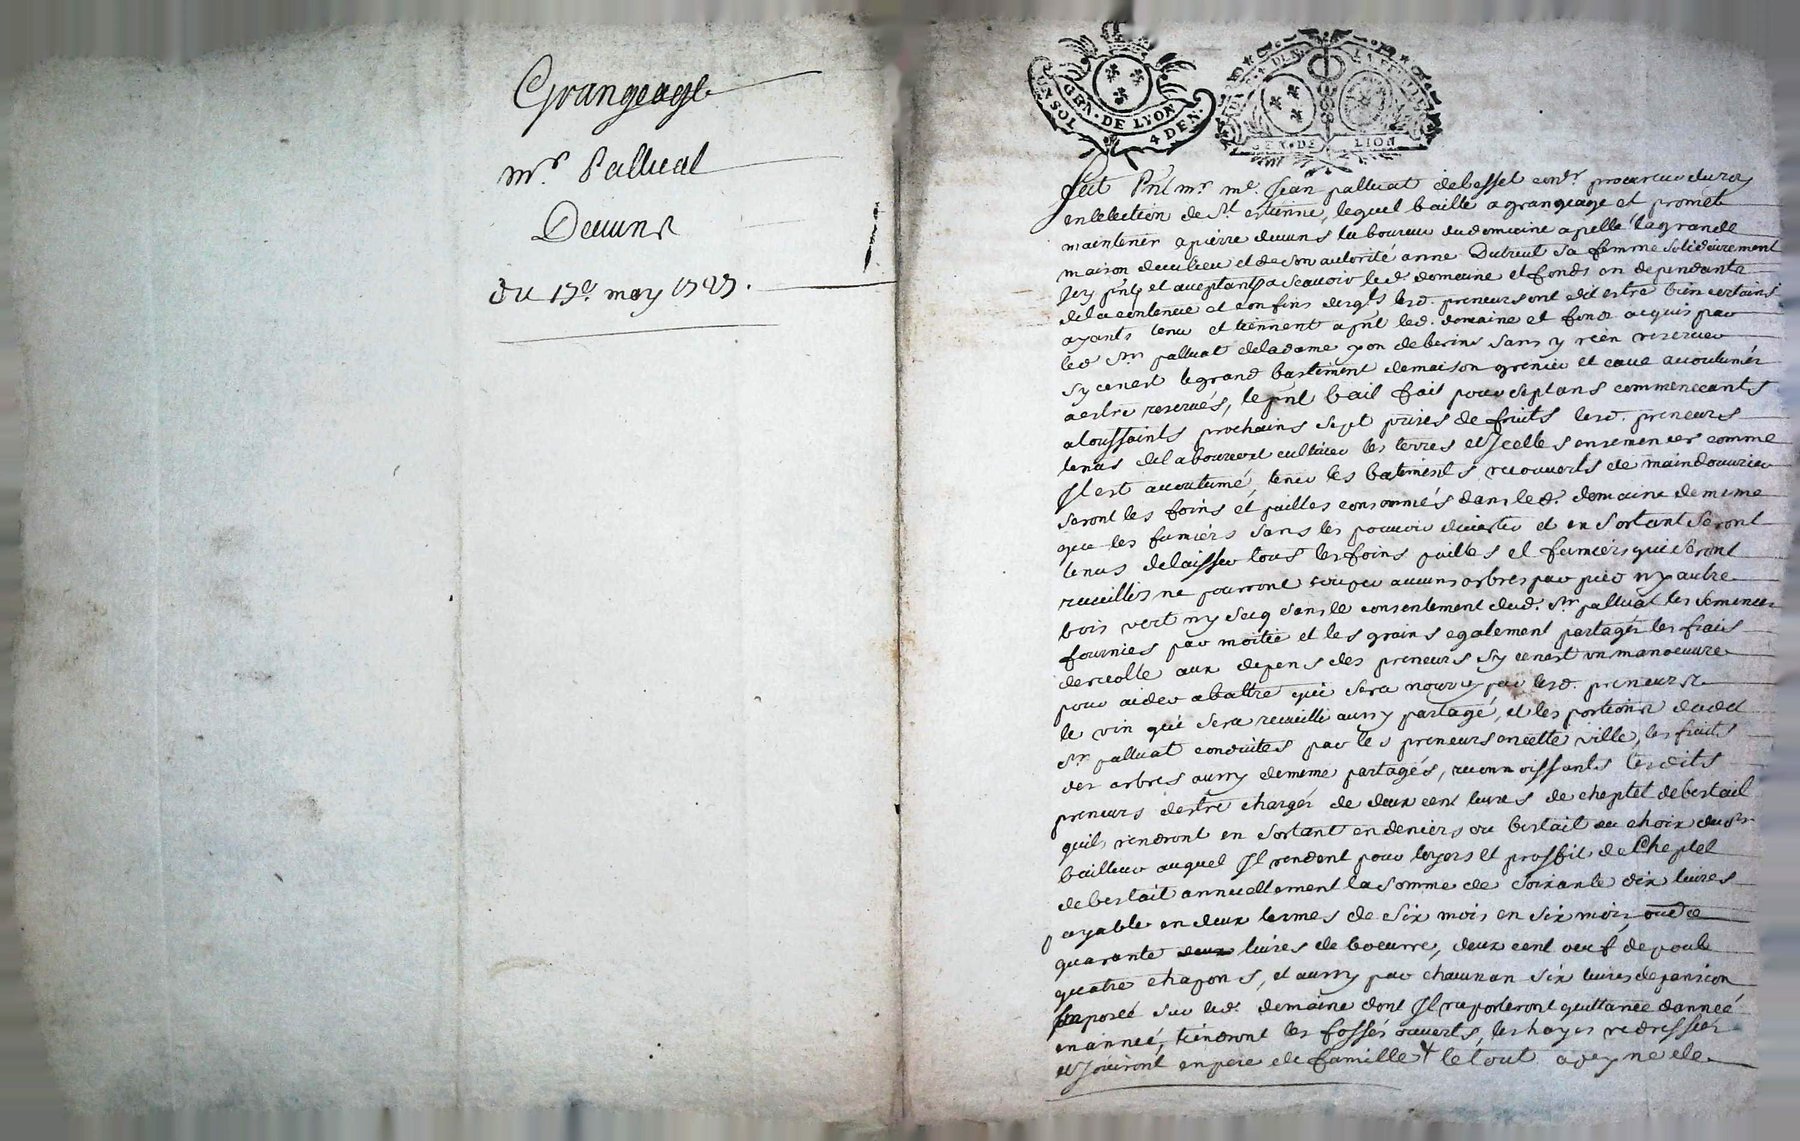 Grangeage
mr. Palluat
Deuuns
Du 17e. may 1727.
UN SOL
GEN. DE LYON
4 DEN.
GEN. DE LION
fut pnt mr. me. Jean palluat debesset coner. procureur du roy
en lelection de St. estienne, lequel baille a grangeage et promet
maintenir a pierre deuuns laboureur du domaine apellé la grande
maison du lieu et de son autorité anne Dutreul sa femme solidairement
Icy pnts et aceptants a scauoir led. domaine et fonds en dependants
de la contenue et confins desqls lesd. preneurs ont dit estre bien certains
ayants tenu et tiennent a pnt led. domaine et fonds acquis par
led. Sr. palluat de la dame yon de berins sans y rien reseruer
sy ce nest le grand bastiment de maison grenier et caue accoutumés
a estre reserués, le pnt bail fait pour sept ans commenceants
a toussaints prochains sept prises de fruits lesd. preneurs
tenus de labourer et cultiuer les terres et Jcelles ensemencer comme
Il est accoutumé, tenir les batiments recouuerts de main douurier
seront les foins et pailles consommés dans led. domaine de meme
que les fumiers sans les pouuoir diuertir et en sortant seront
tenus de laisser tous les foins pailles et fumiers qui seront
recueillis ne pourront couper aucuns arbres par pied ny autre
bois vert ny secq sans le consentement dud. Sr. palluat les semences
fournies par moitié et les grains egalement partagés les frais
de recolte aux depens des preneurs sy ce nest un manoeuure
pour aider a battre qui sera nourry par lesd. preneurs
le vin qui sera recueilli aussy partagé, et les portions dudit
Sr. palluat conduites par les preneurs en cette ville, les fruits
des arbres aussy de meme partagés, reconnoissants lesdits
preneurs destre chargés de deux cent liures de cheptel de bestail
quils rendront en sortant en deniers ou bestail au choix du Sr.
bailleur auquel Il rendent pour loyers et proffit de Cheptel
de bestail annuellement la somme de soixante dix liures
payable en deux termes de six mois en six mois,
quarante liures de beurre, deux cent oeuf de poule
quatre chapons, et aussy par chaun an six liures de pension
Imposée sur led. domaine dont Il raporteront quittance dannée
en année, tiendront les fossés ouuerts, les hayes redressées
et Jouiront en pere de famille le tout a peyne de